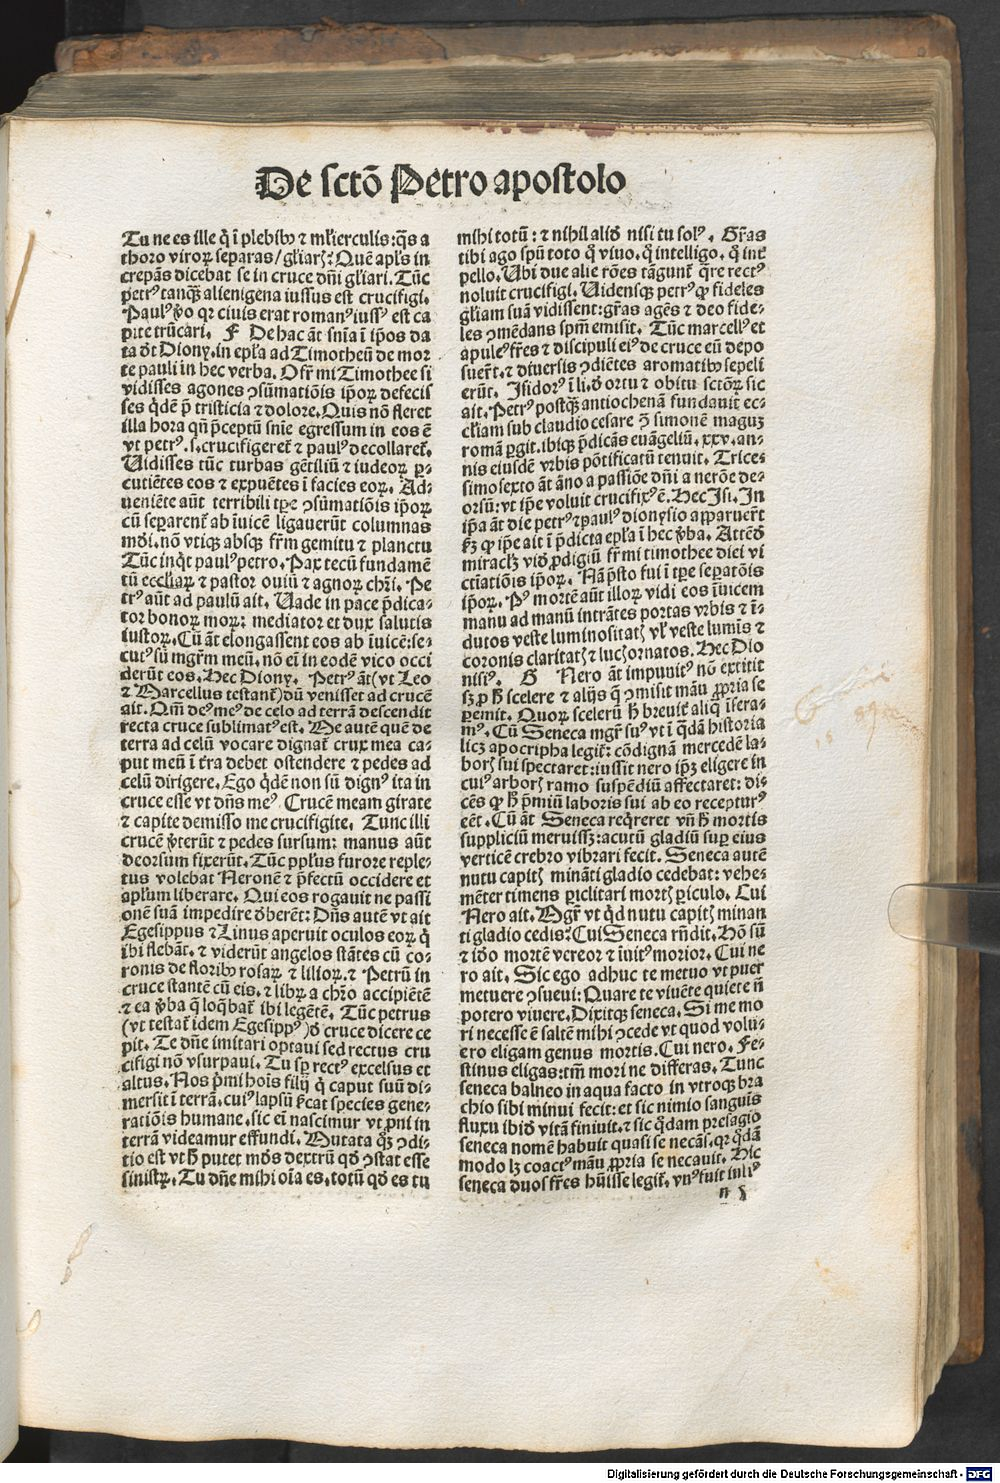 De sctō Petro apostolo
Tu ne es ille q̄ ī plebibꝰ ⁊ ml̓ierculis: q̄s a
thoro viroꝝ separas/gl̓iarꝭ? Quē apl̓s in
crepās dicebat se in cruce dn̄i gl̓iari. Tūc
petrꝰ tanqꝫ alienigena iussus est crucifigi.
Paulꝰ ꝟo qꝛ ciuis erat romanꝰ iussꝰ est ca
pite trūcari. F De hac āt sn̄ia ī ip̄os da
ta d̓t Diony. in epl̓a ad Timotheū de mor
te pauli in hec verba. O fr̄ mi Timothee si
vidisses agones ꝯsūmatiōis ip̄oꝝ defecis
ses q̄dē p̄ tristicia ⁊ dolore. Quis nō fleret
illa hora qn̄ p̄ceptū sn̄ie egressum in eos ē
vt petrꝰ .s. crucifigeret̄ ⁊ paulꝰ decollaret̄.
Uidisses tūc turbas gētiliū ⁊ iudeoꝝ ꝑ-
cutiētes eos ⁊ expuētes ī facies eoꝝ. Ad-
ueniēte aūt terribili tꝑe ꝯsūmatiōis ip̄oꝝ
cū separent̄ ab īuicē ligauerūt columnas
mūdi. nō vtiqꝫ absqꝫ fr̄m gemitu ⁊ planctu
Tūc inq̄t paulꝰ petro. Pax tecū fundamē
tū eccl̓iaꝝ ⁊ pastor ouiū ⁊ agnoꝝ chr̄i. Pe
trꝰ aūt ad paulū ait. Uade in pace p̄dica-
tor bonoꝝ moꝝ: mediator et dux salutis
iustoꝝ. Cū āt elongassent eos ab īuicē: se-
cutꝰ sū mgr̄m meū. nō eī in eodē vico occi
derūt eos. Hec Diony. Petrꝰ āt (vt Leo
⁊ Marcellus testant̄) dū venisset ad crucē
ait. Qm̄ deꝰ meꝰ de celo ad terrā descendit
recta cruce sublimatꝰ est. Me autē quē de
terra ad celū vocare dignat̄ crux mea ca-
put meū ī t̓ra debet ostendere ⁊ pedes ad
celū dirigere. Ego q̄dē non sū dignꝰ ita in
cruce esse vt dn̄s meꝰ. Crucē meam girate
⁊ capite demisso me crucifigite. Tunc illi
crucē ꝟterūt ⁊ pedes sursum: manus aūt
deorsum fixerūt. Tūc ppl̓us furore reple-
tus volebat Neronē ⁊ p̄fectū occidere et
apl̓um liberare. Qui eos rogauit ne passi
onē suā impedire d̓berēt: Dn̄s autē vt ait
Egesippus ⁊ Linus aperuit oculos eoꝝ q̄
ibi flebāt. ⁊ viderūt angelos stātes cū co-
ronis de floribꝰ rosaꝝ ⁊ lilioꝝ. ⁊ Petrū in
cruce stantē cū eis. ⁊ libꝝ a chr̄o accipiētē
⁊ ea ꝟba q̄ loq̄bat̄ ibi legētē. Tūc petrus
(vt testat̄ idem Egesippꝰ) d̓ cruce dicere ce
pit. Te dn̄e imitari optaui sed rectus cru
cifigi nō vsurpaui. Tu sꝑ rectꝰ excelsus et
altus. Nos p̄mi hoīs filij q̄ caput suū di-
mersit ī terrā. cuiꝰ lapsū sic̄at species gene-
ratiōis humane. sic eī nascimur vt ꝓni in
terrā videamur effundi. Mutata q̄ꝫ ꝯdi-
tio est vt h̄ putet mūdꝰ dextrū qd̓ ꝯstat esse
sinistꝝ. Tu dn̄e mihi oīa es. totū qd̓ es tu
mihi totū: ⁊ nihil aliō nisi tu solꝰ. Gr̄as
tibi ago spū toto q̄ viuo. q̄ intelligo. q̄ int̓
pello. Ubi due alie rōes tāgunt̄ q̄re rectꝰ
noluit crucifigi. Uidensqꝫ petrꝰ ꝙ fideles
gl̓iam suā vidissent: gr̄as agēs ⁊ deo fide-
les ꝯmēdans spm̄ emisit. Tūc marcellꝰ et
apuleꝰ fr̄es ⁊ discipuli eiꝰ de cruce eū depo
suer̄t. ⁊ diuersis ꝯdiētes aromatibꝰ sepeli
erūt. Isidorꝰ ī li. d̓ ortu ⁊ obitu sctōꝝ sic
ait. Petrꝰ postqꝫ antiochenā fundauit ec-
cl̓iam sub claudio cesare ꝯ̄ simonē maguꝫ
romā ꝑgit. ibiqꝫ p̄dicās euāgeliū. xxv. an-
nis eiusdē vrbis pōtificatū tenuit. Trice-
simosexto āt āno a passiōe dn̄i a nerōe de-
orsū: vt ip̄e voluit crucifixꝰ ē. Hec Isi. In
ip̄a āt die petrꝰ ⁊ paulꝰ dionysio apparuer̄t
ẜm ꝙ ip̄e ait ī p̄dicta epl̓a ī hec ꝟba. Attēd̓
miraclꝫ vid̓ ꝓdigiū fr̄ mi timothee diei vi
ctīatiōis ip̄oꝝ. Nā p̄sto fui ī tꝑe seꝑatōis
ip̄oꝝ. Pꝰ mortē aūt illoꝝ vidi eos īuicem
manu ad manū intrātes portas vrbis ⁊ ī-
dutos veste luminositatꝭ vl̓ veste lumīs ⁊
coronis claritatꝭ ⁊ lucꝭ ornatos. Hec Dio
nisiꝰ. G Nero āt impunitꝰ nō extitit
sꝫ ꝓ h̄ scelere ⁊ alijs q̄ ꝯmisit māu ꝓpria se
ꝑemit. Quoꝝ sceleꝝ h̄ breuit̓ aliq̄ īsera-
mꝰ. Cū Seneca mgr̄ suꝰ vt ī q̄dā historia
licꝫ apocripha legit̄: cōdignā mercedē la-
borꝭ sui spectaret: iussit nero ip̄ꝫ eligere in
cuiꝰ arborꝭ ramo suspēdiū affectaret: di-
cēs ꝙ h̄ p̄miū laboris sui ab eo recepturꝰ
eēt. Cū āt Seneca req̄reret vn̄ h̄ mortis
suppliciū meruissꝫ: acutū gladiū suꝑ eius
verticē crebro vibrari fecit. Seneca autē
nutu capitꝭ mināti gladio cedebat: vehe-
mēter timens ꝑiclitari mortꝭ ꝑiculo. Cui
Nero ait. Mgr̄ vt qd̓ nutu capitꝭ minan
ti gladio cedis? Cui Seneca rn̄dit. Hō sū
⁊ id̓o mortē vereor ⁊ īuitꝰ morior. Cui ne
ro ait. Sic ego adhuc te metuo vt puer
metuere ꝯsueui: Quare te viuēte quiete n̄
potero viuere. Dixitqꝫ seneca. Si me mo
ri necesse ē saltē mihi ꝯcede vt quod volu-
ero eligam genus mortis. Cui nero. Fe-
stinus eligas: tm̄ mori ne differas. Tunc
seneca balneo in aqua facto in vtroqꝫ bra
chio sibi minui fecit: et sic nimio sanguis
fluxu ibid̓ vitā finiuit. ⁊ sic q̄dam presagio
seneca nomē habuit quasi se necās. qꝛ q̄dā
modo lꝫ coactꝰ māu ꝓpria se necauit. Hic
seneca duos fr̄es hūisse legit̄. vnꝰ fuit iuliꝰ
Digitalisierung gefördert durch die Deutsche Forschungsgemeinschaft - DFG